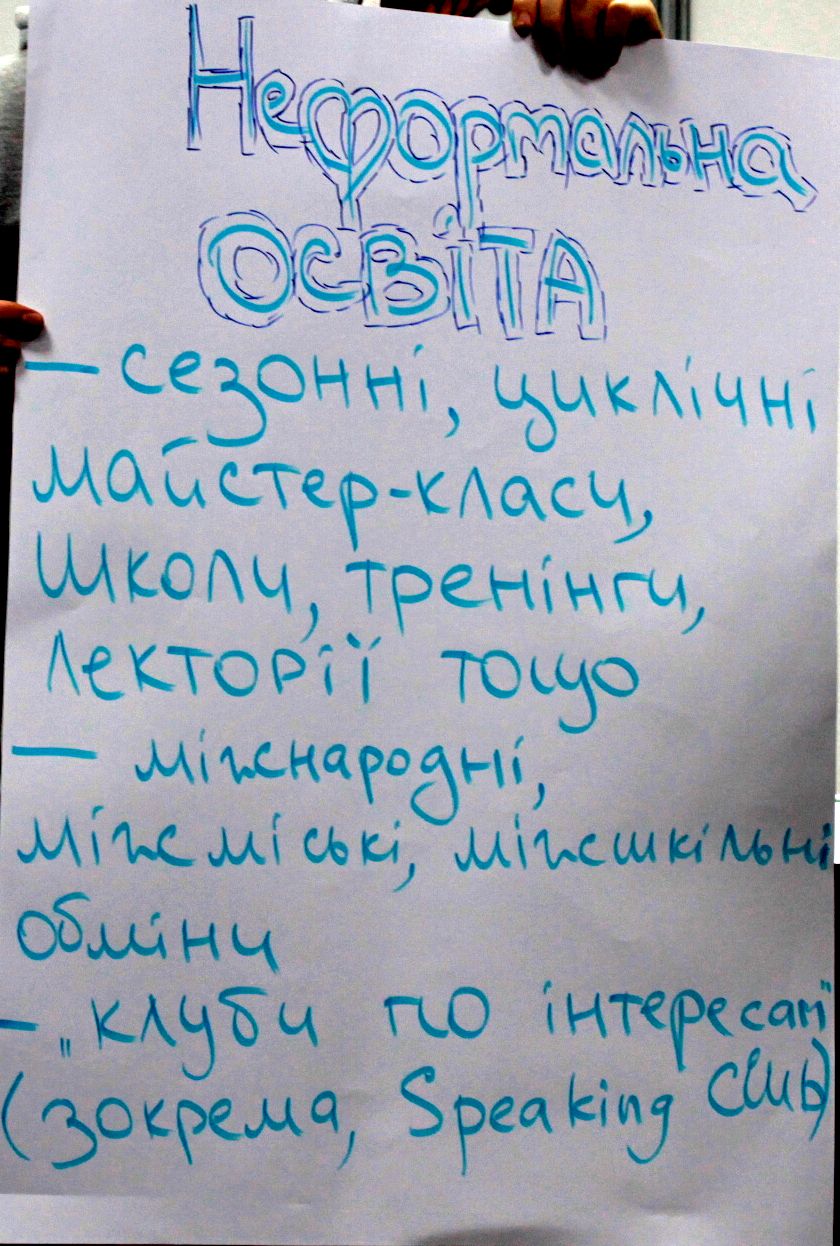 Неформальна
освіта
— сезонні, циклічні
майстер-класи,
школи, тренінги,
лекторії тощо
— міжнародні,
міжміські, міжшкільні
обміни
— „клуби по інтересам"
(зокрема, Speaking Club)